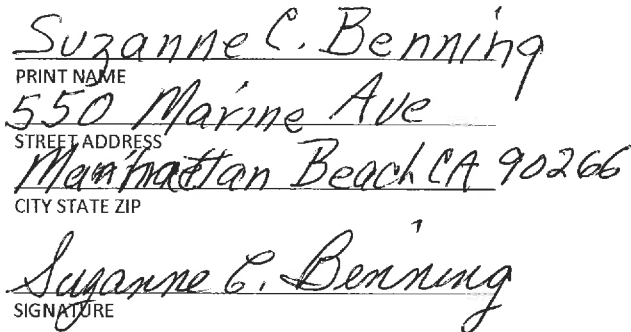 Suzanne C. Benning
PRINT NAME
550 Marine Ave
STREET ADDRESS
Manhattan Beach CA 90266
CITY STATE ZIP
Suzanne C. Benning
SIGNATURE